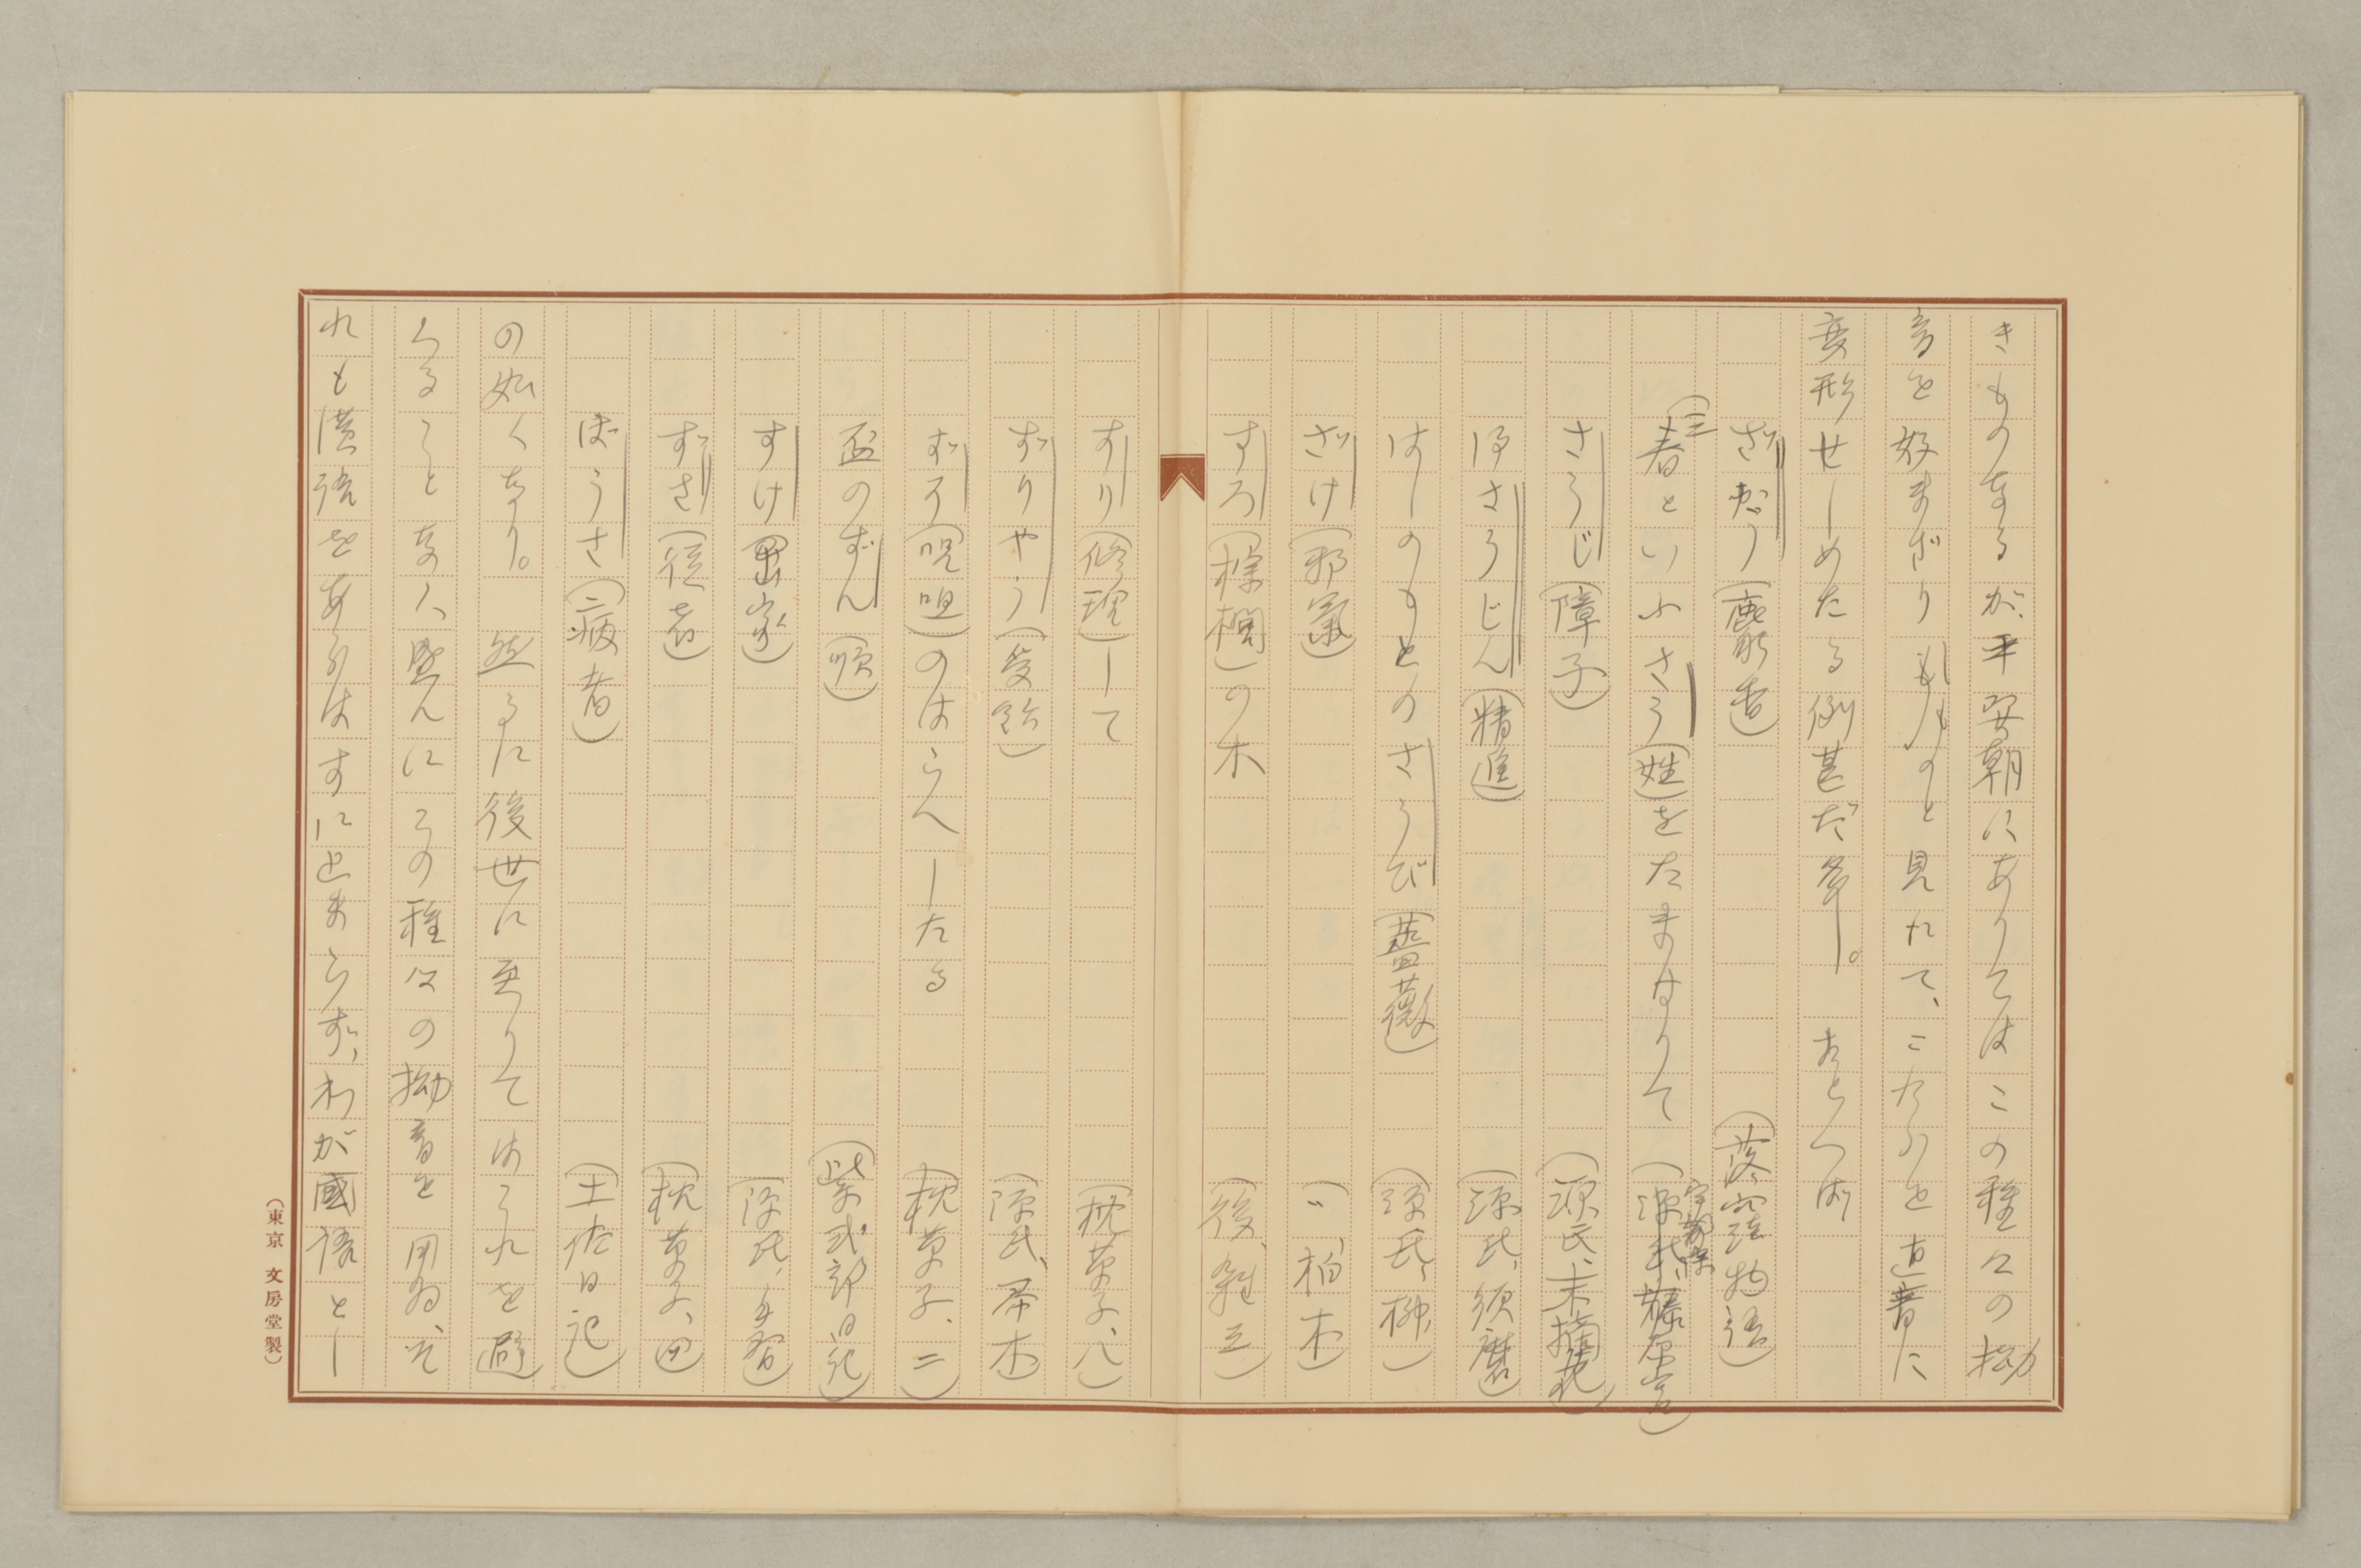 きものなるが、平安朝にありてはこの種類の拗
音を好まざりしものと見れて、こたらを直音に
変形せしめたる例甚だ多し。たとへば
ざかう(麝香)(落窪物語)
(三春といふさう(姓)をたまはりて(宇津保、藤原宮)
さうじ(障子)(源氏、末摘花)
さうじん(精進)(源氏、須磨)
はしのもとのさうび(薔薇)(源氏、榊)
ざけ(邪氣)(〃、柏木)
すろ(棕櫚)の木(後、雑三)
すり(修理)して(枕草子、八)
ずりやう(受領)(源氏、帚木)
ずそ(呪咀)のはらへしたる(枕草子、二)
盃のずん(順)(紫式部日記)
すけ(出家)(源氏、手習)
ずさ(従者)(枕草子、四)
ばうさ(病者)(土佐日記)
の如くなり。然るに後世に至りてはこれを避
くることなく、盛んにこの種の拗音を用ゐ、そ
れも漢語をあらはすに止まらず、わが國語とし
(東京 文房堂製)